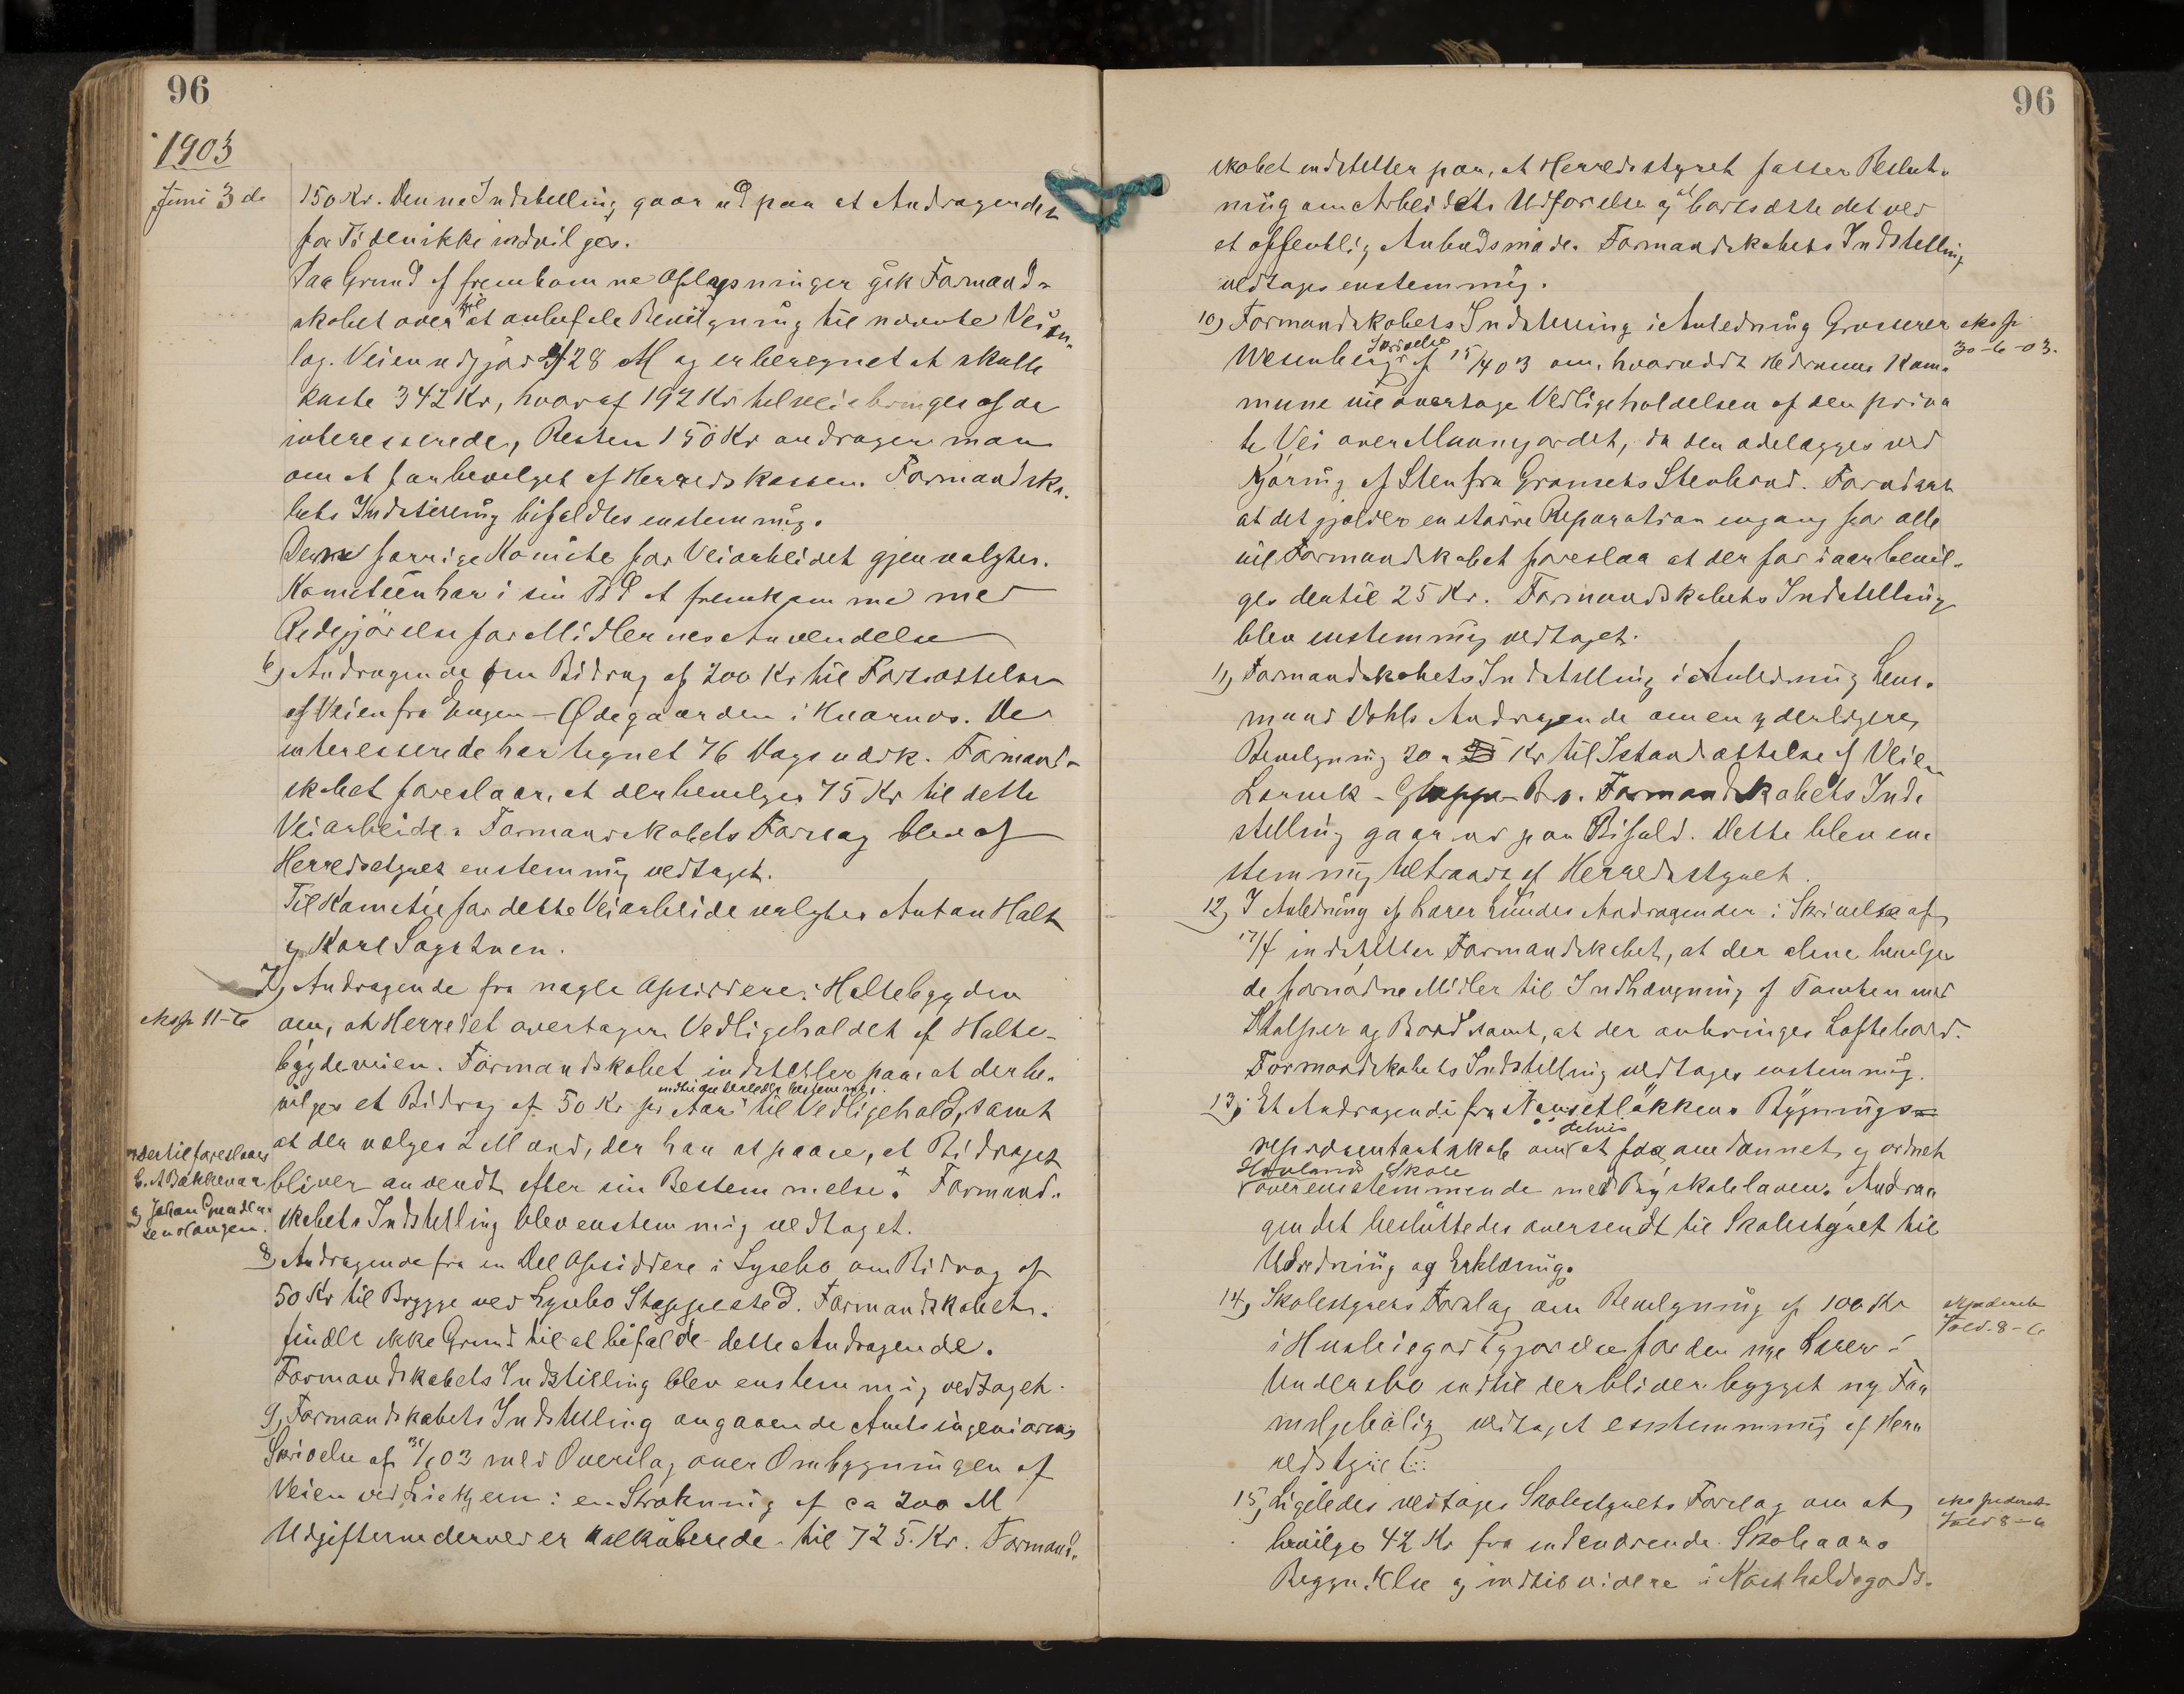 96
1903
Juni 3de
150 Kr. Denne Indstilling gaar ud paa at Andragendet
for Tiden ikke indvilges.
Paa Grund af fremkomne Oplysninger gik Formand-
skabet over til at anbefale Bevilgning til nævnte Vei
lag. Veien udgjør 428 M og er beregnet at skulle
koste 342 Kr, hvoraf 192 Kr tilveiebringes af de
interesserede, Resten 150 Kr andrager man
om at faa bevilget af Herredskassen. Formandska-
bets Indstilling bifaldtes enstemmig.
Den forrige Komite for Veiarbeidet gjenvalgtes.
Komiteen har i sin Tid at fremkomme med
Redegjørelse for Midlernes Anvendelse
6, Andragende om Bidrag af 200 Kr til Fortsættelse
af Veien fra Engen - Ødegaarden i Hvarnes. De
interesserede har tegnet 76 Dagsværk. Formand-
skabet foreslaar, at der bevilges 75 Kr til dette
Veiarbeide. Formandskabets Forslag blev af
Herredsstyret enstemmig vedtaget.
Til Komite for dette Veiarbeide valgtes Anton Halt
og Karl Sagatuen.
7, Andragende fra nogle Opsiddere i Haltebygden
eksp 11-6
om, at Herredet overtager Vedligeholdet af Halte-
bygdeveien. Formandskabet indstiller paa, at der be-
vilges et Bidrag af 50 Kr pr Aar indtil anderledes bestemmes til Vedligehold, samt
at der vælges 2 Mænd, der har at paase, at Bidraget
bliver anvendt efter sin Bestemmelse. + Formand-
skabets Indstilling blev enstemmig vedtaget.
+ dertil foreslaaes
C. A Bakkevar
og Johan Gundersen Haugen.
8, Andragende fra en Del Opsiddere i Lysebo om Bidrag af
50 Kr til Brygge ved Lysebo Stoppested. Formandskabet
findt ikke Grund til at bifalde dette Andragende.
Formandskabets Indstilling blev enstemmig vedtaget.
9, Formandskabets Indstilling angaaende Amtsingeniørens
Skrivelse af 03 med Overslag over Ombygningen af
Veien ved i en Strækning af ca 200 M
Udgifterne derved er kalkulerede til 725. Kr. Formand-
96
skabet indstiller paa, at Herredsstyret fatter Beslut-
ning om Arbeidets Udførelse og at bortsætte det ved
et offentlig Anbudsmøde. Formandskabets Indstilling
vedtages enstemmig.
10, Formandskabets Indstilling i Anledning Grosserer
eksp
30-6-03.
Wesenbergs Skrivelse af 15/4 03 om, hvorvidt Hedrums Kom-
mune vil overtage Vedligeholdelsen af den priva
te Vei over Mannejordet, da den ødelægges ved
Kjøring af Sten fra Gronsets Stenbrud. Forudsat
at det gjælder en større Reparation engang for alle
vil Formandskabet foreslaa at der for iaar bevil-
ges dertil 25 Kr. Formandskabets Indstilling
blev enstemmig vedtaget.
11, Formandskabets Indstilling i Anledning Lens-
mand Dahls Andragende om en yderligere
Bevilgning 20 Kr til Istandsættelse af Veien
Larvik - Gloppe - Bro. Formandskabets Ind-
stilling gaar ud paa Bifald. Dette blev en-
stemmig tiltraadt af Herredsstyret.
12, I Anledning af Lærer Lundes Andragender i Skrivelse af
17/4 indstiller Formandskabet, at der bevilges
de fornødne Midler til Indhængning af Tomten med
Stolper og Bord samt, at der anbringes Loftsbord.
Formandskabets Indstilling vedtages enstemmig.
13, Et Andragende fra Nansetløkkens Bygnings-
repræsentantskab om at faa omdannet og ordnet
Hovlands Skole
overensstemmende med Byskoleloven. Andra-
gendet besluttedes oversendt til Skolestyret til
Udredning og Erklæring.
14, Skolestyrets Forslag om Bevilgning af 100 Kr
Told. 8-6
i Husleiegodtgjørelse for den nye Lærer i
Undersbo indtil der bliver bygget ny Fa-
miliebolig vedtaget enstemmig af Her-
redsstyret.
15, Ligeledes vedtages Skolestyrets Forslag om at
Told 8-6
bevilge 42 Kr fra indeværende Skoleaars
Begyndelse og indtil videre i Kostholdsgodt-